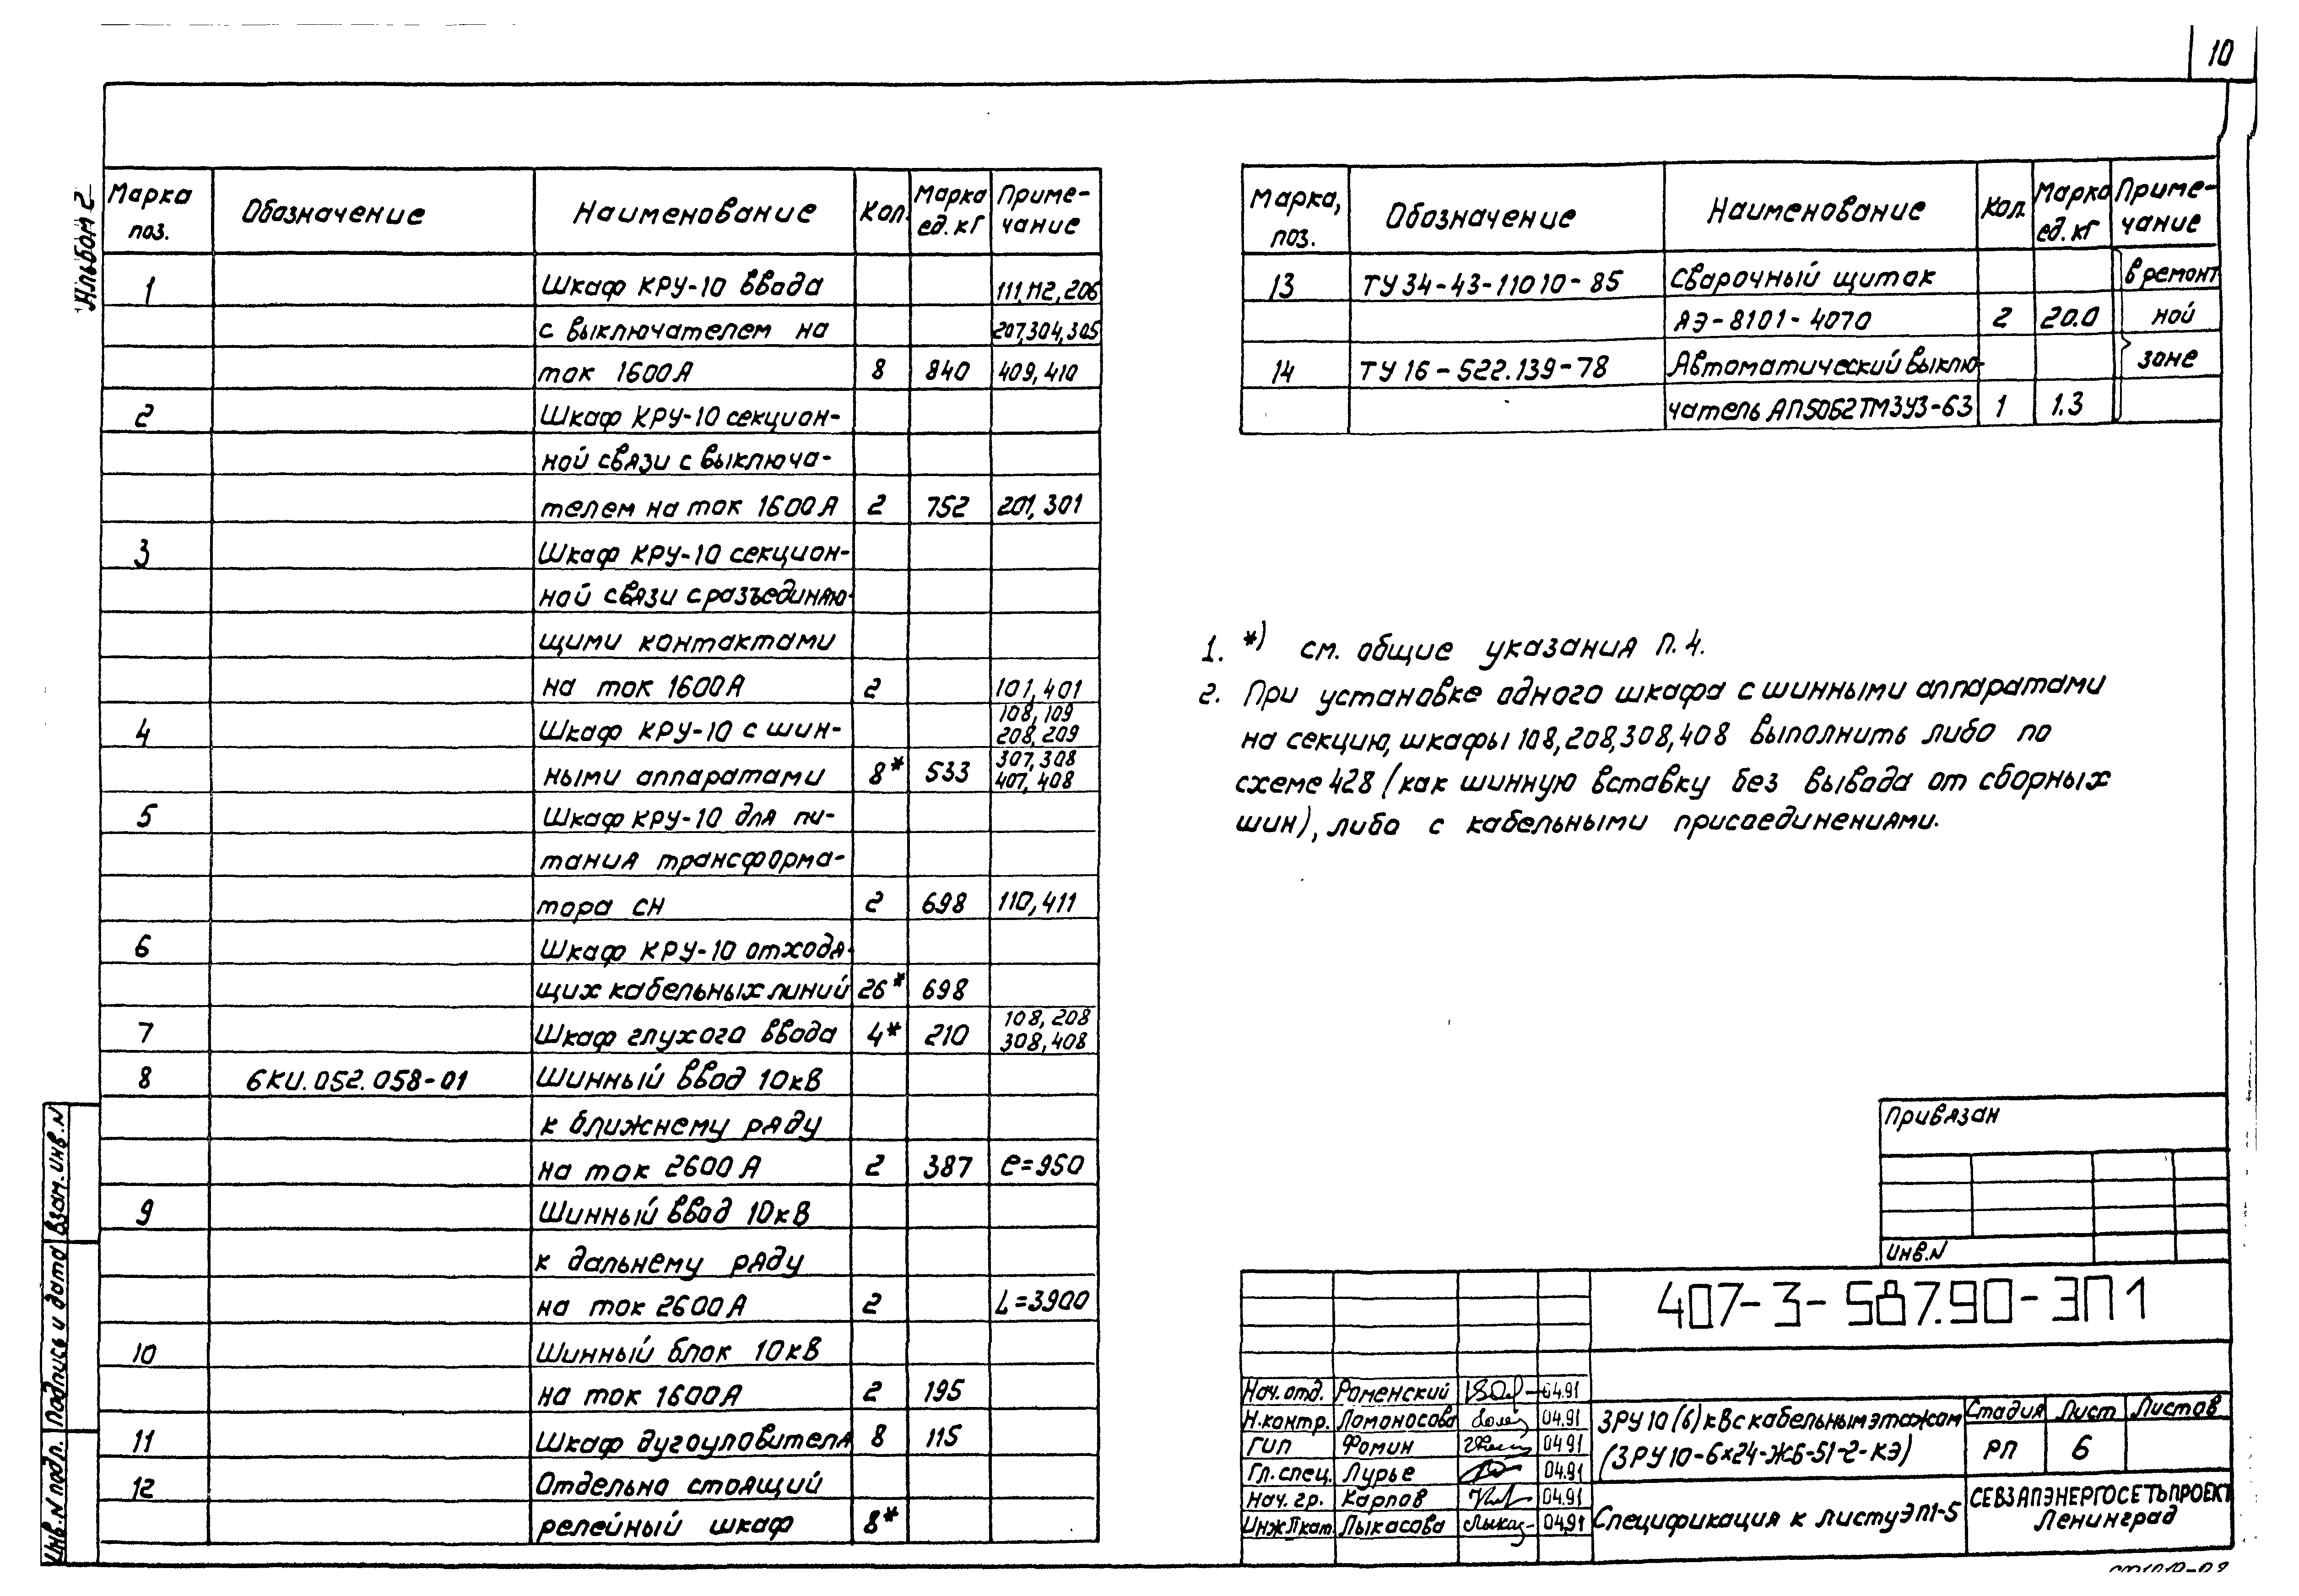 10
Альбом 2
Марка поз. Обозначение Наименование Кол. Марка ед. кг Приме-чание
1 Шкаф КРУ-10 ввода 111, 112, 206
с выключателем на 207, 304, 305
ток 1600А 8 840 409, 410
2 Шкаф КРУ-10 секцион-
ной связи с выключа-
телем на ток 1600А 2 752 201, 301
3 Шкаф КРУ-10 секцион-
ной связи с разъединяю-
щими контактами
на ток 1600А 2 101, 401
4 Шкаф КРУ-10 с шин- 108, 109 208, 209
ными аппаратами 8* 533 307, 308 407, 408
5 Шкаф КРУ-10 для пи-
тания трансформа-
тора СН 2 698 110, 411
6 Шкаф КРУ-10 отходя-
щих кабельных линий 26* 698
7 Шкаф глухого ввода 4* 210 108, 208 308, 408
8 6КИ.052.058-01 Шинный ввод 10кВ
к ближнему ряду
на ток 2600А 2 387 ℓ=950
9 Шинный ввод 10кВ
к дальнему ряду
на ток 2600А 2 L=3900
10 Шинный блок 10кВ
на ток 1600А 2 195
11 Шкаф дугоуловителя 8 115
12 Отдельно стоящий
релейный шкаф 8*
Марка, поз. Обозначение Наименование Кол. Марка ед. кг Приме-чание
13 ТУ 34-43-11010-85 Сварочный щиток в ремонт
ЯЭ-8101-4070 2 20.0 ной
14 ТУ 16-522.139-78 Автоматический выклю- зоне
чатель АП50Б2ТМ3У3-63 1 1.3
1. *) см. общие указания п. 4.
2. При установке одного шкафа с шинными аппаратами
на секцию, шкафы 108, 208, 308, 408 выполнить либо по
схеме 428 (как шинную вставку без вывода от сборных
шин), либо с кабельными присоединениями.
Привязан
Инв. N
407-3-587.90-ЭП1
Нач. отд. Роменский 04.91
Н. контр. Ломоносова 04.91
ГИП Фомин 04.91
Гл. спец. Лурье 04.91
Нач. гр. Карпов 04.91
Инж IIкат. Лыкасова 04.91
ЗРУ 10 (6) кВ с кабельным этажом
(ЗРУ 10-6х24-ЖБ-51-2-КЭ)
Стадия Лист Листов
РП 6
Спецификация к листу ЭП1-5
СЕВЗАПЭНЕРГОСЕТЬПРОЕКТ
Ленинград
Инв. N подл. Подпись и дата Взам. инв. N